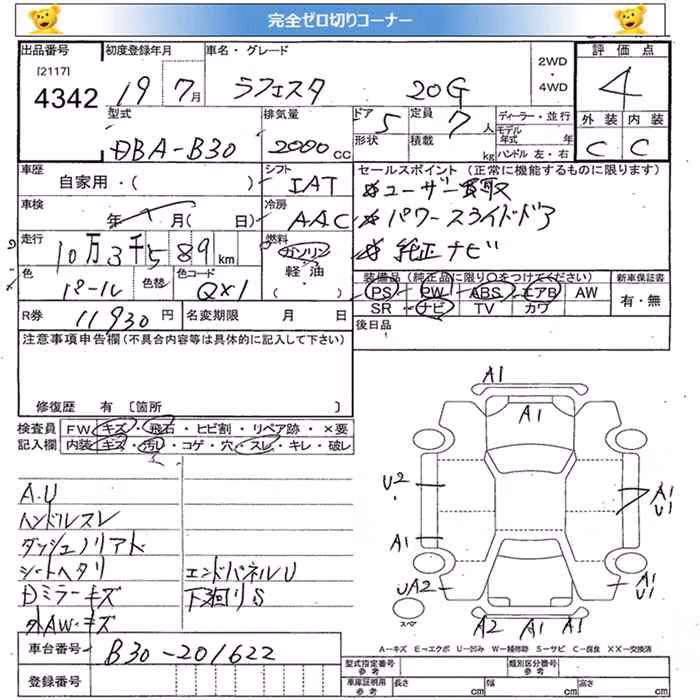 完全ゼロ切りコーナー
出品番号 初度登録年月 車名・グレード 評価点
[2117]
4342 19 7月 ラフェスタ 20G 2WD・4WD 4
型式 排気量 ドア 5 定員 7人 ディーラー・並行 外装 内装
DBA-B30 2000cc 形状 積載 kg モデル年式 年 ハンドル 左・右 C C
車歴 自家用・( ) シフト IAT セールスポイント (正常に機能するものに限ります)
ユーザー買取
車検 年 月( 日) 冷房 AAC パワースライドドア
走行 10万3千589km 燃料 ガソリン 軽・油 ( ) 純正ナビ
色 パール 色替 色コード QX1 装備品 (純正品に限り○をつけてください) 新車保証書
PS PW ABS エアB AW 有・無
R券 11930円 名変期限 月 日 SR ナビ TV カワ
後日品
注意事項申告欄(不具合内容等は具体的に記入して下さい)
修復歴 有 [箇所 ]
検査員 FW キズ・飛石・ヒビ割・リペア跡・×要
記入欄 内装 キズ・汚レ・コゲ・穴・スレ・キレ・破レ
A.U
ハンドルスレ
ダッシュノリアト
シートヘタリ エンドパネルU
Dミラーキズ 下廻りS
外AWキズ
車台番号 B30-201622
登録番号
A1
A1
U2
A1
U1
A1
UA2
A1
U1
スペア
A2 A1 A1
A-キズ E-エクボ U-凹み W-補修跡 S-サビ C-腐食 XX-交換済
型式指定番号 参考 類別区分番号 参考
車庫証明用 参考 長さ cm 幅 cm 高 cm